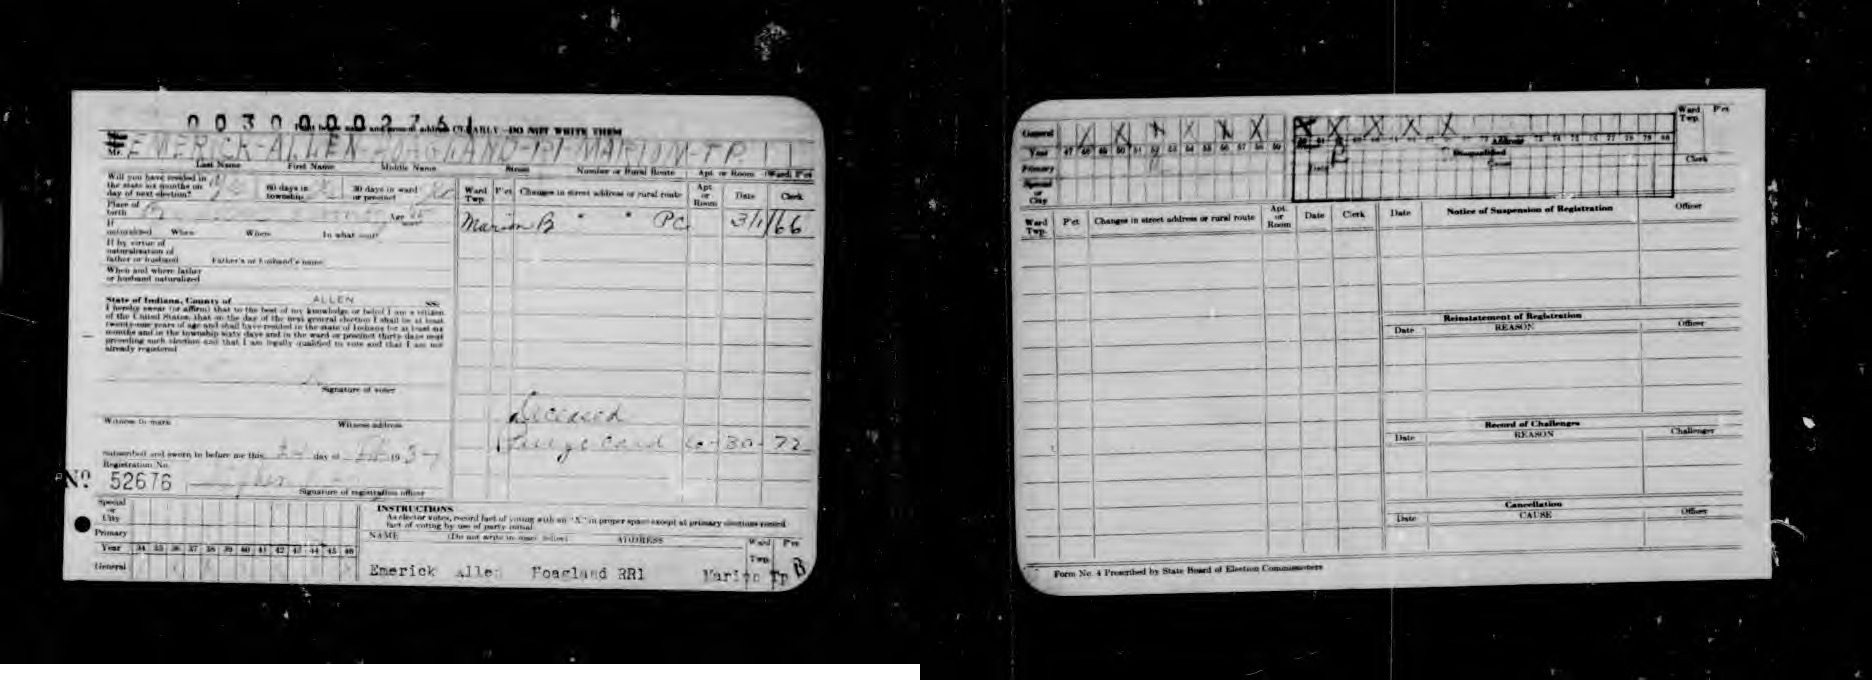 0030000276
Print below name and present address CLEARLY—DO NOT WRITE THEM
Mr. EMERICK-ALLEN-HOAGLAND-R1-MARION-TP
Last Name First Name Middle Name Street Number or Rural Route Apt. or Room Ward P'ct
Will you have resided in
the state six months on
day of next election?
60 days in
township
30 days in ward
or precinct
Place of
birth
Age
If
naturalized When Where In what court
If by virtue of
naturalization of
father or husband Father's or husband's name
When and where father
or husband naturalized
State of Indiana, County of ALLEN SS:
I hereby swear (or affirm) that to the best of my knowledge or belief I am a citizen
of the United States, that on the day of the next general election I shall be at least
twenty-one years of age and shall have resided in the state of Indiana for at least six
months and in the township sixty days and in the ward or precinct thirty days next
preceding such election and that I am legally qualified to vote and that I am not
already registered
Signature of voter
Witness to mark Witness address
Subscribed and sworn to before me this day of 19
Registration No.
Nº 52676
Signature of registration officer
Ward Twp. P'ct Changes in street address or rural route Apt. or Room Date Clerk
Marion B " " PC 3/1/66
Deceased
Purge Card 6-30-72
Special
or
City
Primary
Year 34 35 36 37 38 39 40 41 42 43 44 45 46
General
INSTRUCTIONS
As elector votes, record fact of voting with an "X" in proper space except at primary elections record
fact of voting by use of party initial
NAME (Do not write in space below) ADDRESS Ward Twp. P'ct
Emerick Allen Hoagland RR1 Marion Tp B
General X X X X X X X X X X X
Year 47 48 49 50 51 52 53 54 55 56 57 58 59
Primary
Special
or
City
Address
Disqualified
Cause
Date
Ward Twp. P'ct
Clerk
Ward Twp. P'ct Changes in street address or rural route Apt. or Room Date Clerk
Date Notice of Suspension of Registration Officer
Reinstatement of Registration
Date REASON Officer
Record of Challenges
Date REASON Challenger
Cancellation
Date CAUSE Officer
Form No. 4 Prescribed by State Board of Election Commissioners